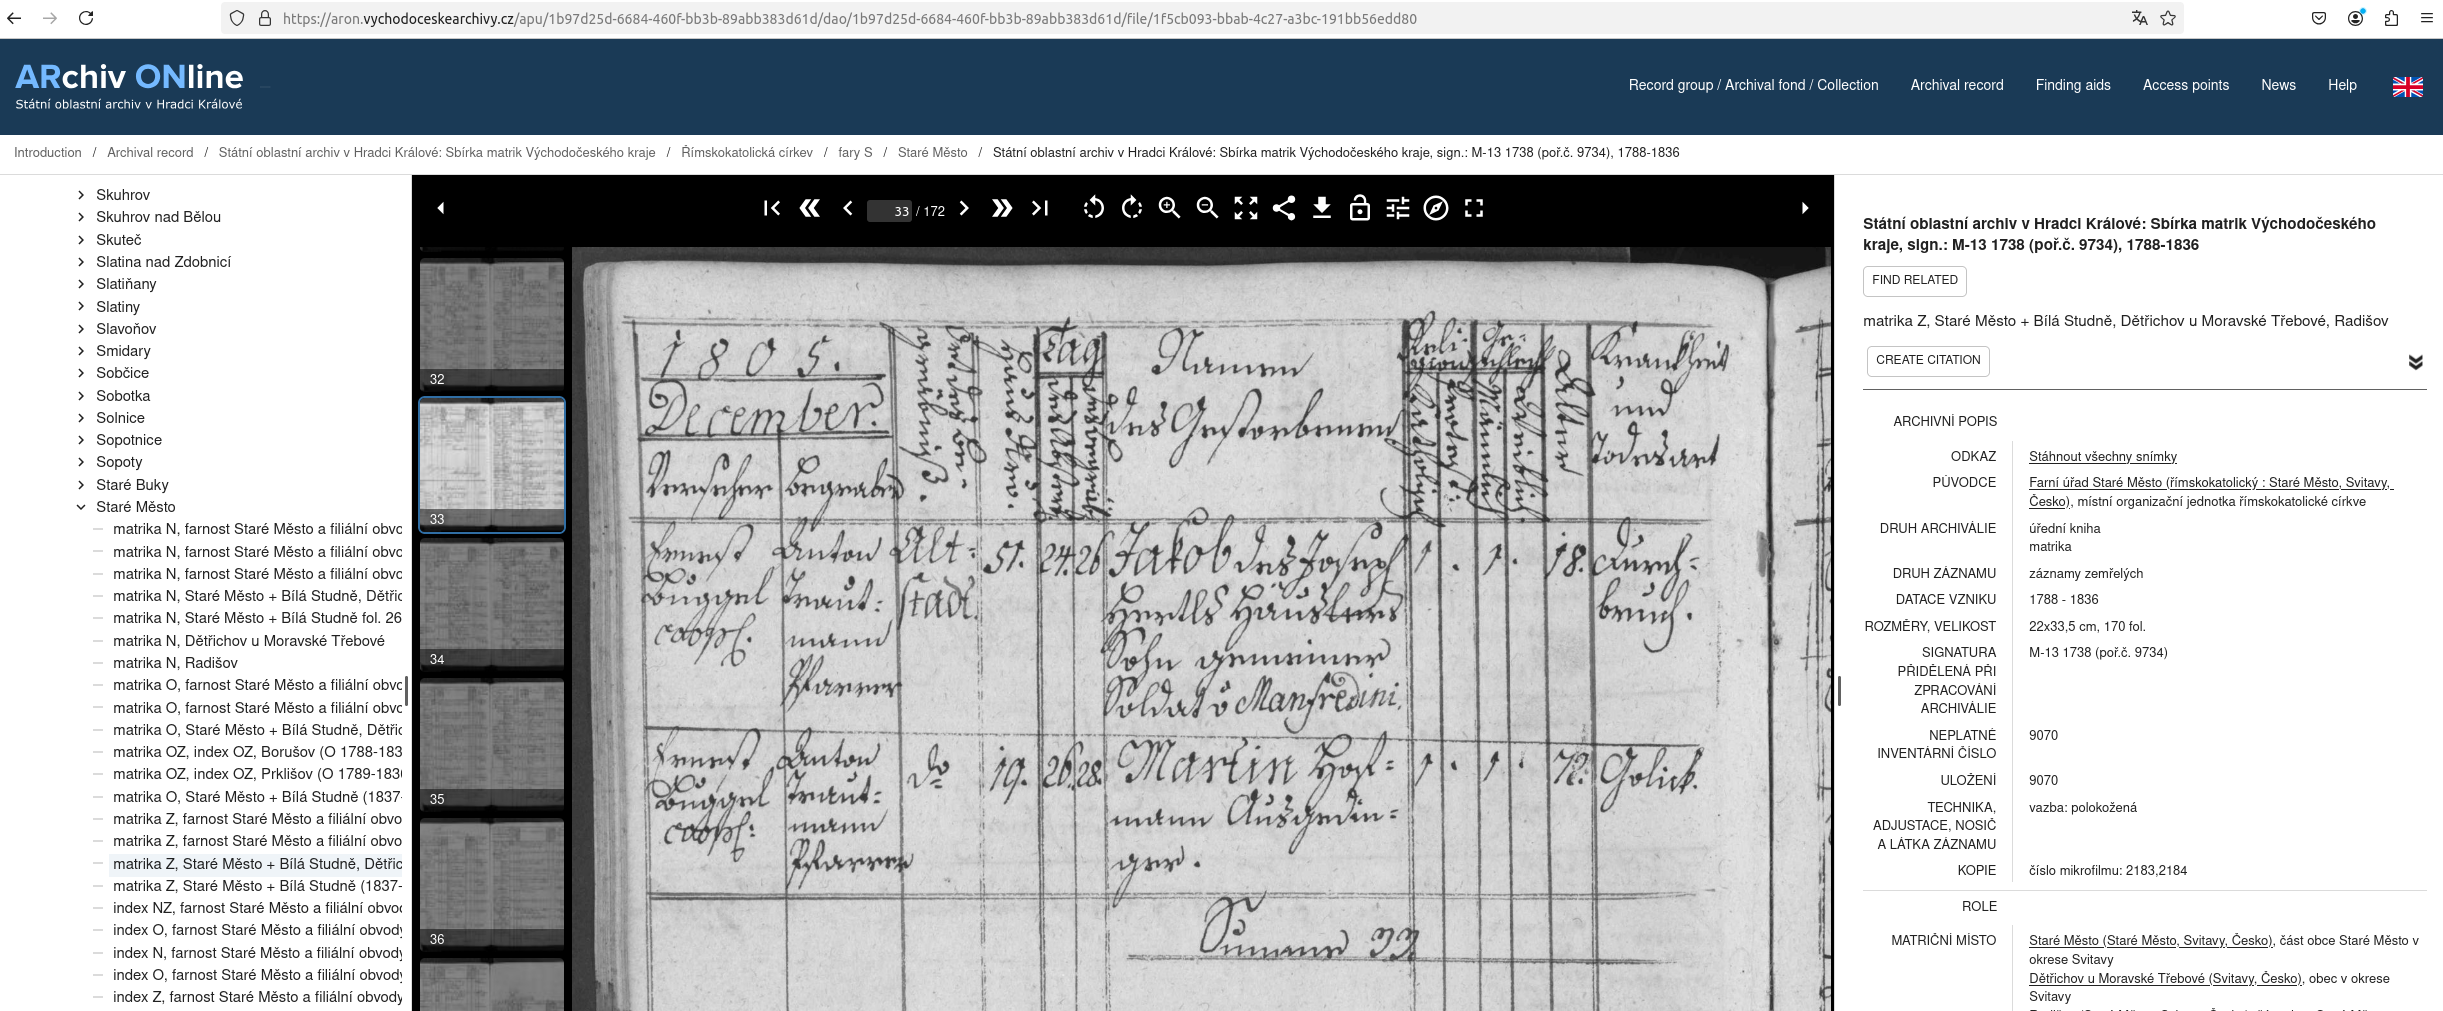 https://aron.vychodoceskearchivy.cz/apu/1b97d25d-6684-460f-bb3b-89abb383d61d/dao/1b97d25d-6684-460f-bb3b-89abb383d61d/file/1f5cb093-bbab-4c27-a3bc-191bb56edd80
ARchiv ONline
Státní oblastní archiv v Hradci Králové
Record group / Archival fond / Collection
Archival record
Finding aids
Access points
News
Help
Introduction / Archival record / Státní oblastní archiv v Hradci Králové: Sbírka matrik Východočeského kraje / Římskokatolická církev / fary S / Staré Město / Státní oblastní archiv v Hradci Králové: Sbírka matrik Východočeského kraje, sign.: M-13 1738 (poř.č. 9734), 1788-1836
Skuhrov
Skuhrov nad Bělou
Skuteč
Slatina nad Zdobnicí
Slatiňany
Slatiny
Slavoňov
Smidary
Sobčice
Sobotka
Solnice
Sopotnice
Sopoty
Staré Buky
Staré Město
matrika N, farnost Staré Město a filiální obvo
matrika N, farnost Staré Město a filiální obvo
matrika N, farnost Staré Město a filiální obvo
matrika N, Staré Město + Bílá Studně, Dětřic
matrika N, Staré Město + Bílá Studně fol. 26
matrika N, Dětřichov u Moravské Třebové
matrika N, Radišov
matrika O, farnost Staré Město a filiální obvo
matrika O, farnost Staré Město a filiální obvo
matrika O, Staré Město + Bílá Studně, Dětřic
matrika OZ, index OZ, Borušov (O 1788-183
matrika OZ, index OZ, Prklišov (O 1789-1836
matrika O, Staré Město + Bílá Studně (1837-
matrika Z, farnost Staré Město a filiální obvo
matrika Z, farnost Staré Město a filiální obvo
matrika Z, Staré Město + Bílá Studně, Dětřic
matrika Z, Staré Město + Bílá Studně (1837-
index NZ, farnost Staré Město a filiální obvod
index O, farnost Staré Město a filiální obvody
index N, farnost Staré Město a filiální obvody
index O, farnost Staré Město a filiální obvody
index Z, farnost Staré Město a filiální obvody
33 / 172
32
33
34
35
36
1805.
December.
Versehen
Begraben
Tag
Namen
des Gestorbenen
Reli-
gion
Ge-
schlecht
Katholisch
Männlich
Weiblich
Alter
Krankheit
und
Todesart
Ernest
Anton
Traut-
mann
Pfarrer
Alt-
stadt.
51.
24. 26
Jakob des Joseph
Hertls Häuslers
Sohn gemeiner
Soldat v Manfredini.
1 . 1 .
18.
Durch-
bruch.
Ernest
Anton
Traut-
mann
Pfarrer
do
19.
26. 28.
Martin Hof-
mann Ausgedin-
ger.
1 . 1 .
72.
Golick.
Summa 33.
Státní oblastní archiv v Hradci Králové: Sbírka matrik Východočeského
kraje, sign.: M-13 1738 (poř.č. 9734), 1788-1836
FIND RELATED
matrika Z, Staré Město + Bílá Studně, Dětřichov u Moravské Třebové, Radišov
CREATE CITATION
ARCHIVNÍ POPIS
ODKAZ
Stáhnout všechny snímky
PŮVODCE
Farní úřad Staré Město (římskokatolický : Staré Město, Svitavy,
Česko), místní organizační jednotka římskokatolické církve
DRUH ARCHIVÁLIE
úřední kniha
matrika
DRUH ZÁZNAMU
záznamy zemřelých
DATACE VZNIKU
1788 - 1836
ROZMĚRY, VELIKOST
22x33,5 cm, 170 fol.
SIGNATURA
PŘIDĚLENÁ PŘI
ZPRACOVÁNÍ
ARCHIVÁLIE
M-13 1738 (poř.č. 9734)
NEPLATNÉ
INVENTÁRNÍ ČÍSLO
9070
ULOŽENÍ
9070
TECHNIKA,
ADJUSTACE, NOSIČ
A LÁTKA ZÁZNAMU
vazba: polokožená
KOPIE
číslo mikrofilmu: 2183,2184
ROLE
MATRIČNÍ MÍSTO
Staré Město (Staré Město, Svitavy, Česko), část obce Staré Město v
okrese Svitavy
Dětřichov u Moravské Třebové (Svitavy, Česko), obec v okrese
Svitavy